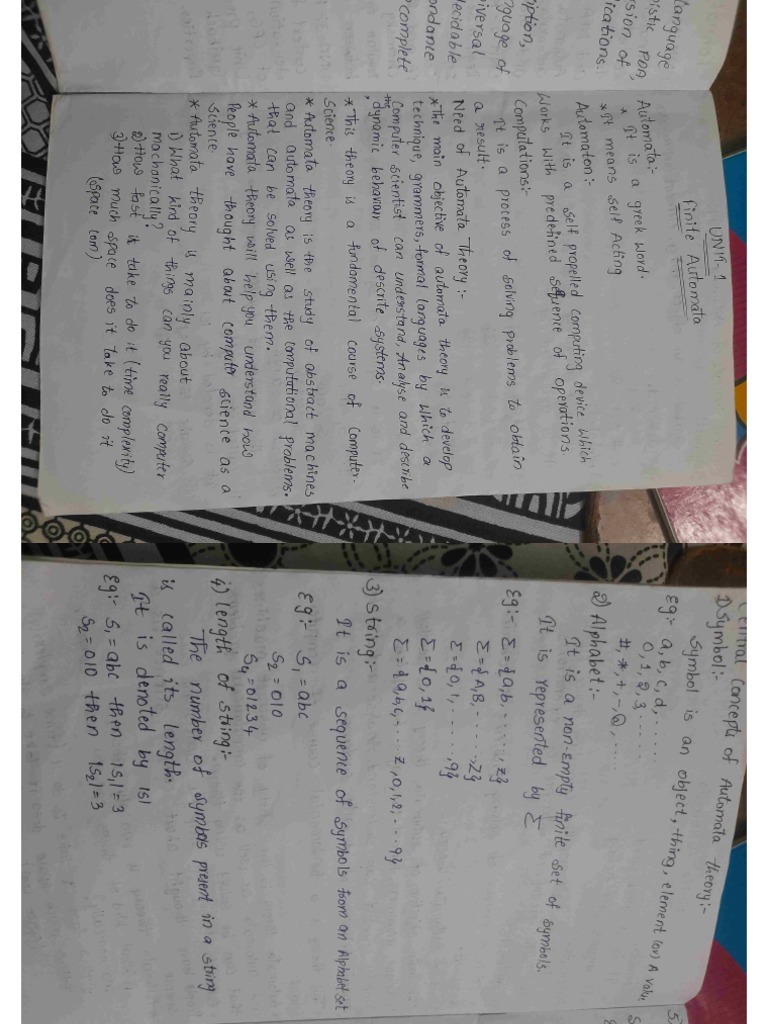 language
istic PDA,
sion of
ications.
ption,
guage of
iversal
decidable
ondance
complete
UNIT-1
Finite Automata
Automata:-
* It is a greek word.
* It means self Acting
Automaton:-
It is a self propelled computing device which
works with predefined sequence of operations
Computations:-
It is a process of solving problems to obtain
a result.
Need of Automata Theory:-
* The main objective of automata theory is to develop
technique, grammers, formal languages by which a
Computer scientist can understand, Analyse and describe
the dynamic behaviour of descrite systems.
* This theory is a fundamental course of computer.
Science.
* Automata theory is the study of abstract machines
and automata as well as the computational problems.
that can be solved using them.
* Automata theory will help you understand how
People have thought about computer science as a
science
* Automata theory is mainly about
1) What kind of things can you really computer
machonically?
2) How fast is take to do it (time complexity)
3) How much space does it take to do it
(space com)
Central Concepts of Automata theory:-
1) Symbol:-
Symbol is an object, thing, element (or) A value
eg:- a, b, c, d, ....
0, 1, 2, 3 .....
#, *, +, -, @, ...
2) Alphabet:-
It is a non-empty finite set of symbols.
It is represented by Σ
Eg:- Σ = {a, b, ....., z}
Σ = {A, B, ....., Z}
Σ = {0, 1, ....., 9}
Σ = {0, 1}
Σ = {a, b, c, ... z, 0, 1, 2, ... 9}
3) String:-
It is a sequence of symbols from an Alphabet set
eg:- S₁ = abc
S₂ = 010
S₄ = 01234
4) length of string:-
The number of symbols present in a string
is called its length.
It is denoted by |S|
eg:- S₁ = abc then |S₁| = 3
S₂ = 010 then |S₂| = 3
5)